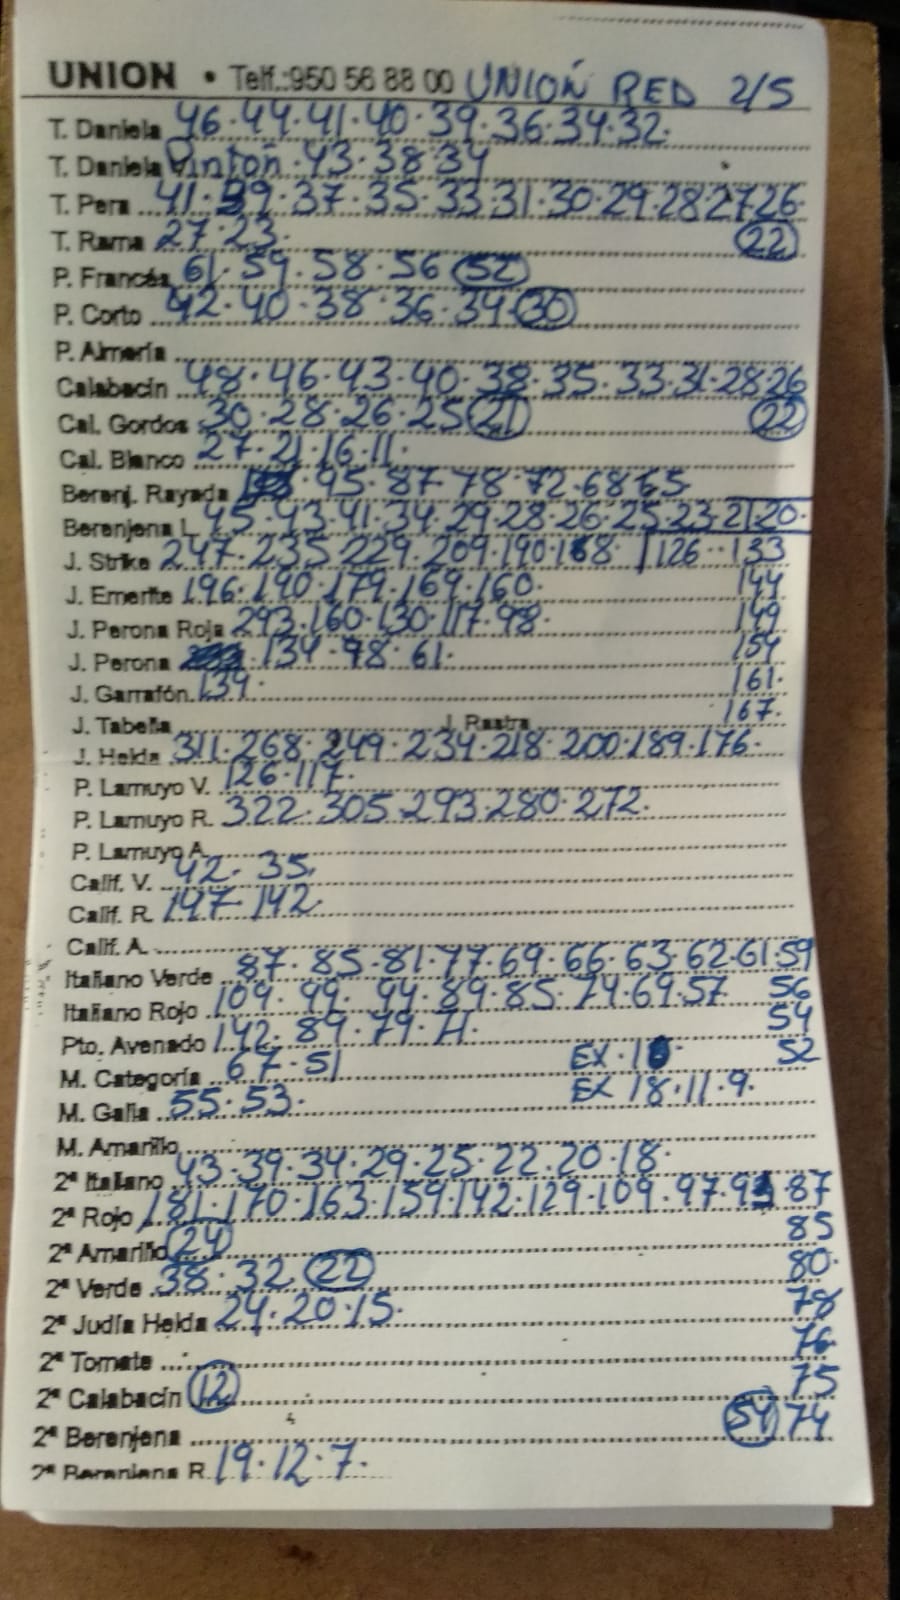 UNION • Telf.:950 56 88 00 UNION RED 2/5
T. Daniela 46·44·41·40·39·36·34·32·
T. Daniela Pinton·43·38·34
T. Pera 41·39·37·35·33·31·30·29·28·27·26·
T. Rama 27·23· 22
P. Francés 61·59·58·56 52
P. Corto 42·40·38·36·34·30
P. Almería
Calabacín 48·46·43·40·38·35·33·31·28·26
Cal. Gordos 30·28·26·25 21 22
Cal. Blanco 27·21·16·11·
Berenj. Rayada ·95·87·78·72·68·65
Berenjena L 45·43·41·34·29·28·26·25·23·21·20·
J. Strike 247·235·229·209·190·168· 126··133
J. Emerite 196·190·179·169·160· 144
J. Perona Roja 293·160·130·117·98· 149
J. Perona 134·98·61· 154
J. Garrafón 139· 161·
J. Tabella J. Rastra 167·
J. Helda 311·268·249·234·218·200·189·176·
P. Lamuyo V. 126·117·
P. Lamuyo R. 322·305·293·280·272·
P. Lamuyo A.
Calif. V. 42·35·
Calif. R. 147·142·
Calif. A.
Italiano Verde 87·85·81·77·69·66·63·62·61·59
Italiano Rojo 109·99·94·89·85·74·69·57 56
Pto. Avenado 142·89·79·71· 54
M. Categoría 67·51 EX·10· 52
M. Galia 55·53· EX 18·11·9·
M. Amarillo
2ª Italiano 43·39·34·29·25·22·20·18·
2ª Rojo 181·170·163·159·142·129·109·97·93 87
2ª Amarillo 24 85
2ª Verde 38·32 22 80·
2ª Judía Helda 24·20·15· 78
2ª Tomate 76
2ª Calabacín 12 75
2ª Berenjena 54 74
2ª Berenjena R. 19·12·7·